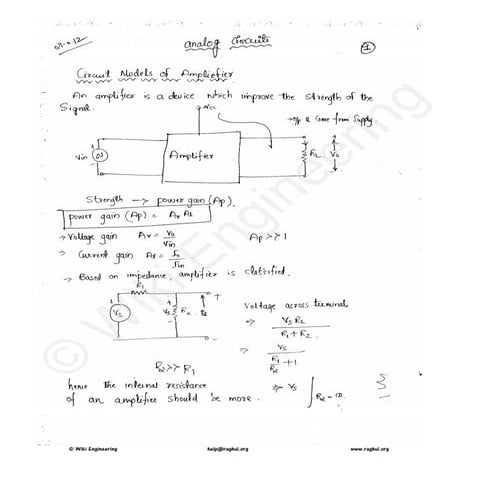 analog Circuits
1
Circuit Models of Ampliefier
An amplifier is a device which improve the strength of the
Signal.
→ o/p is come from Supply.
Vin
Amplifier
RL
Vo
Strength → power gain (Ap).
power gain (Ap) = Av AI
→ Voltage gain Av = Vo / Vin
Ap >> 1
→ Current gain AI = Io / Iin
→ Based on impedance, amplifier is classified.
R1
+
Vs
R2
-
Voltage across terminal
⇒ Vs R2 / R1 + R2
⇒ Vs / R1/R2 + 1
R2 >> R1
hence the internal resistance
of an amplifier should be more.
⇒ Vs
R2 = ∞
© Wiki Engineering
© Wiki Engineering
help@raghul.org
www.raghul.org